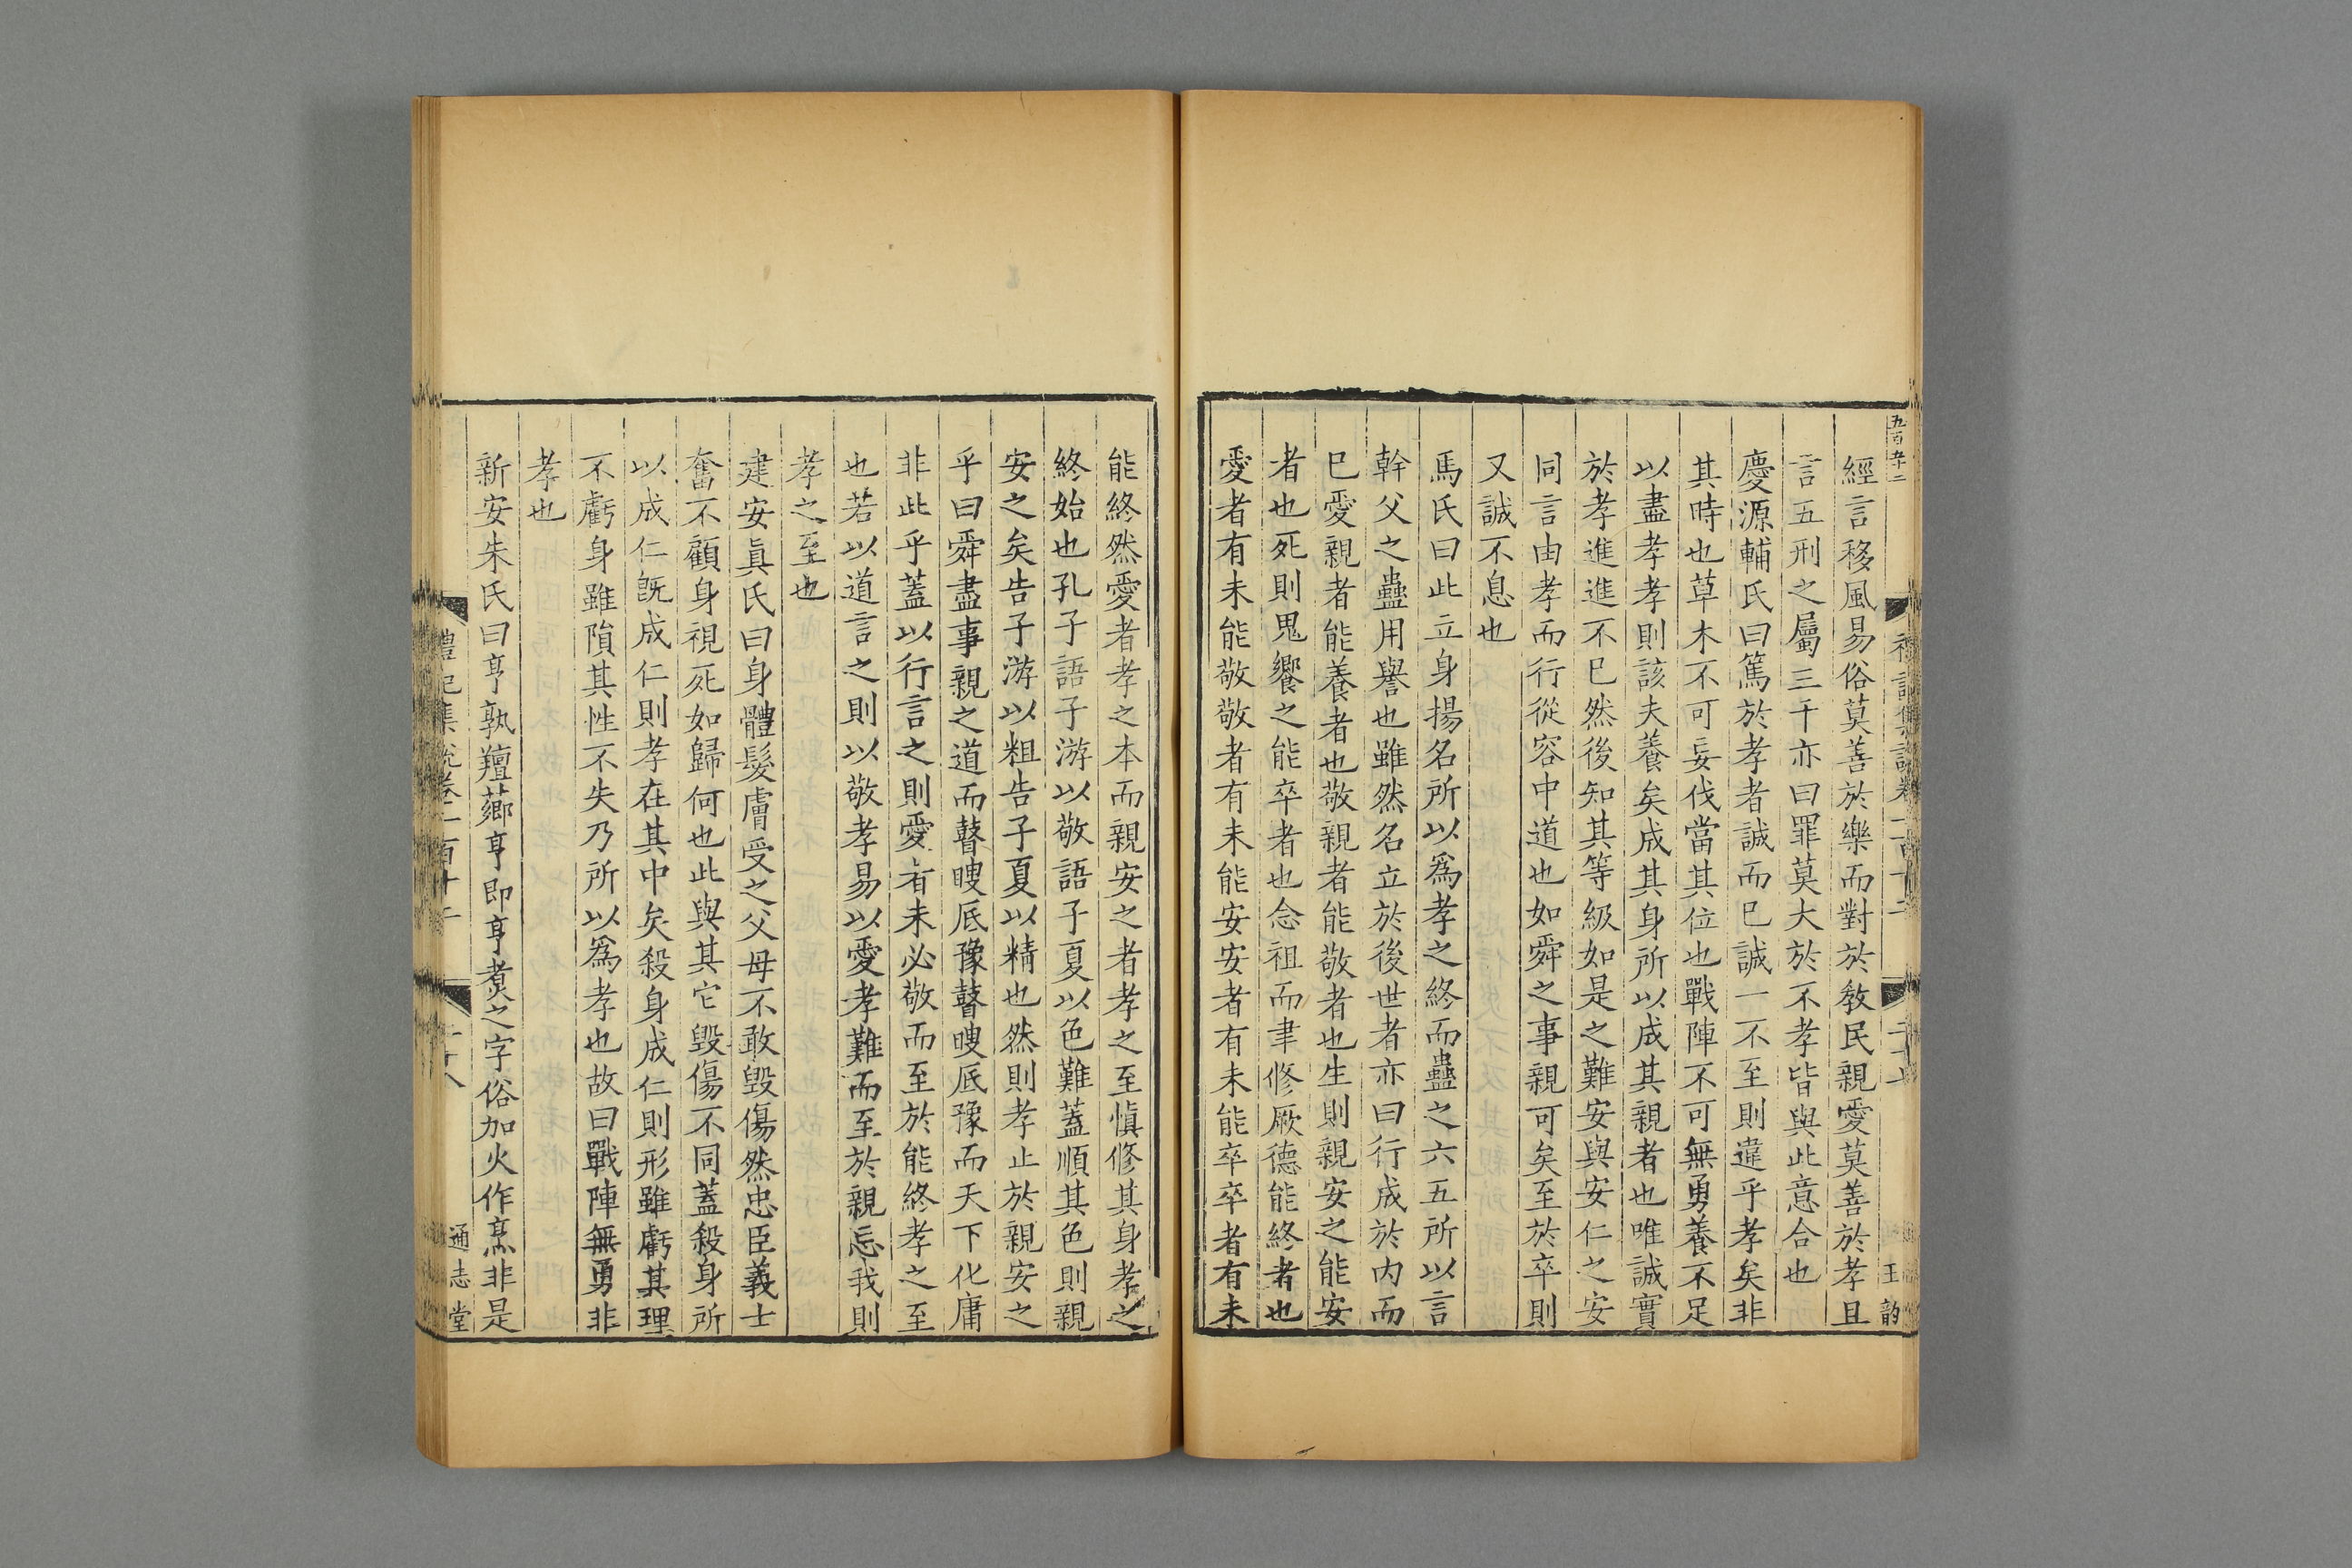 五百五十二
經言移風易俗莫善於樂而對於敎民親愛莫善於孝且
言五刑之屬三千亦曰罪莫大於不孝皆與此意合也
慶源輔氏曰篤於孝者誠而巳誠一不至則違乎孝矣非
其時也草木不可妄伐當其位也戰陣不可無勇養不足
以盡孝孝則該夫養矣成其身所以成其親者也唯誠實
於孝進進不巳然後知其等級如是之難安與安仁之安
同言由孝而行從容中道也如舜之事親可矣至於卒則
又誠不息也
馬氏曰此立身揚名所以爲孝之終而蠱之六五所以言
幹父之蠱用譽也雖然名立於後世者亦曰行成於内而
巳愛親者能養者也敬親者能敬者也生則親安之能安
者也死則鬼饗之能卒者也念祖而聿修厥德能終者也
愛者有未能敬敬者有未能安安者有未能卒卒者有未
王韵
能終然愛者孝之本而親安之者孝之至愼修其身孝之
終始也孔子語子游以敬語子夏以色難蓋順其色則親
安之矣告子游以粗告子夏以精也然則孝止於親安之
乎曰舜盡事親之道而瞽瞍厎豫瞽瞍厎豫而天下化庸
非此乎蓋以行言之則愛者未必敬而至於能終孝之至
也若以道言之則以敬孝易以愛孝難而至於親忘我則
孝之至也
建安眞氏曰身體髮膚受之父母不敢毀傷然忠臣義士
奮不顧身視死如歸何也此與其它毀傷不同蓋殺身所
以成仁旣成仁則孝在其中矣殺身成仁則形雖虧其理
不虧身雖隕其性不失乃所以爲孝也故曰戰陣無勇非
孝也
新安朱氏曰亨孰羶薌亨即亨煮之字俗加火作烹非是
禮記集說卷一百十二
二十八
通志堂